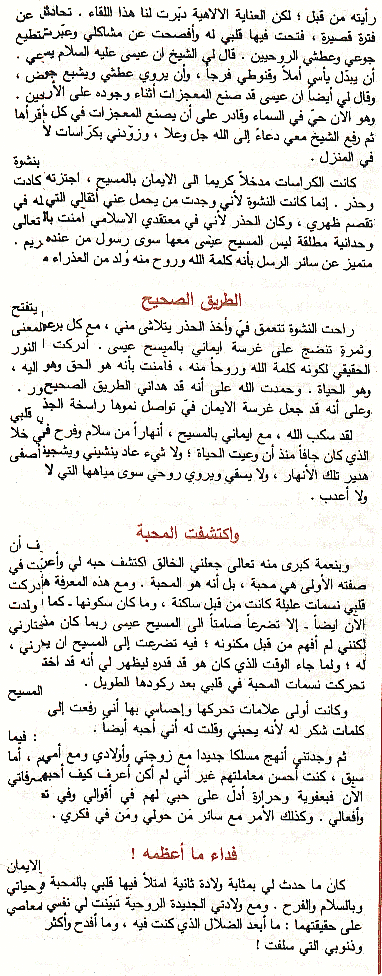 رأيته من قبل ؛ لكن العناية الالاهية دبّرت لنا هذا اللقاء . تحادثنا عن
فترة قصيرة ، فتحت فيها قلبي له وأفصحت عن مشاكلي وعبّرت
جوعي وعطشي الروحيين . قال لي الشيخ ان عيسى عليه السلام يستطيع
أن يبدّل يأسي أملاً وقنوطي فرجاً ، وأن يروي عطشي ويشبع جوعي .
وقال لي أيضاً ان عيسى قد صنع المعجزات أثناء وجوده على الأرض ،
وهو الآن حيّ في السماء وقادر على أن يصنع المعجزات في كل حين .
ثم رفع الشيخ معي دعاءً إلى الله جل وعلا ، وزوّدني بكرّاسات لأقرأها
في المنزل .
كانت الكراسات مدخلاً كريما الى الايمان بالمسيح ، اجتزته بنشوة
وحذر . إنما كانت النشوة لأني وجدت من يحمل عني أثقالي التي كادت
تقصم ظهري ، وكان الحذر لأني في معتقدي الاسلامي آمنت بالله في
وحدانية مطلقة ليس المسيح عيسى معها سوى رسول من عنده تعالى
متميز عن سائر الرسل بأنه كلمة الله وروح منه وُلد من العذراء مريم .
الطريق الصحيح
راحت النشوة تتعمق فيّ وأخذ الحذر يتلاشى مني ، مع كل برعم يتفتح
وثمرة تنضج على غرسة ايماني بالمسيح عيسى . أدركت المعنى
الحقيقي لكونه كلمة الله وروحاً منه ، فآمنت بأنه هو الحق وهو النور
وهو الحياة . وحمدت الله على أنه قد هداني الطريق الصحيح اليه ،
وعلى أنه قد جعل غرسة الايمان فيّ تواصل نموها راسخة الجذور .
لقد سكب الله ، مع ايماني بالمسيح ، أنهاراً من سلام وفرح في قلبي
الذي كان جافاً منذ أن وعيت الحياة ؛ ولا شيء عاد ينشيني ويشجيني خلا
هدير تلك الأنهار ، ولا يسقي ويروي روحي سوى مياهها التي لا أصفى
ولا أعذب .
واكتشفت المحبة
وبنعمة كبرى منه تعالى جعلني الخالق اكتشف حبه لي وأعرف أن
صفته الأولى هي محبة ، بل أنه هو المحبة . ومع هذه المعرفة هبّت في
قلبي نسمات عليلة كانت من قبل ساكنة ، وما كان سكونها ـ كما أدركت
الآن ايضاً ـ إلا تضرعاً صامتاً الى المسيح عيسى ربما كان منذ ولدت
لكنني لم أفهم من قبل مكنونه ؛ فيه تضرعت إلى المسيح ان يختارني
له ؛ ولما جاء الوقت الذي كان هو قد قدره ليظهر لي أنه قد اختارني ،
تحركت نسمات المحبة في قلبي بعد ركودها الطويل .
وكانت أولى علامات تحركها وإحساسي بها أني رفعت إلى المسيح
كلمات شكر له لأنه يحبني وقلت له أني أحبه أيضاً .
ثم وجدتني أنهج مسلكا جديدا مع زوجتي وأولادي ومع أمي : فيما
سبق ، كنت أحسن معاملتهم غير أني لم أكن أعرف كيف أحبهم ، أما
الآن فبعفوية وحرارة أدلّ على حبي لهم في أقوالي وفي تصرفاتي
وأفعالي . وكذلك الأمر مع سائر مَن حولي ومَن في فكري .
فداء ما أعظمه !
كان ما حدث لي بمثابة ولادة ثانية امتلأ فيها قلبي بالمحبة والايمان
وبالسلام والفرح . ومع ولادتي الجديدة الروحية تبيّنت لي نفسي وحياتي
على حقيقتهما : ما أبعد الضلال الذي كنت فيه ، وما أفدح وأكثر معاصي
وذنوبي التي سلفت !